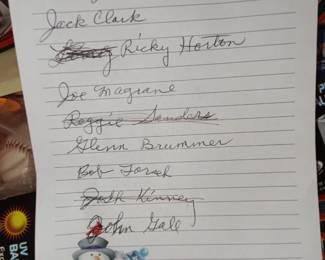 Jack Clark
Ricky Horton
Joe Magrane
Reggie Sanders
Glenn Brummer
Bob Forsch
Josh Kinney
John Gale
UV
BA